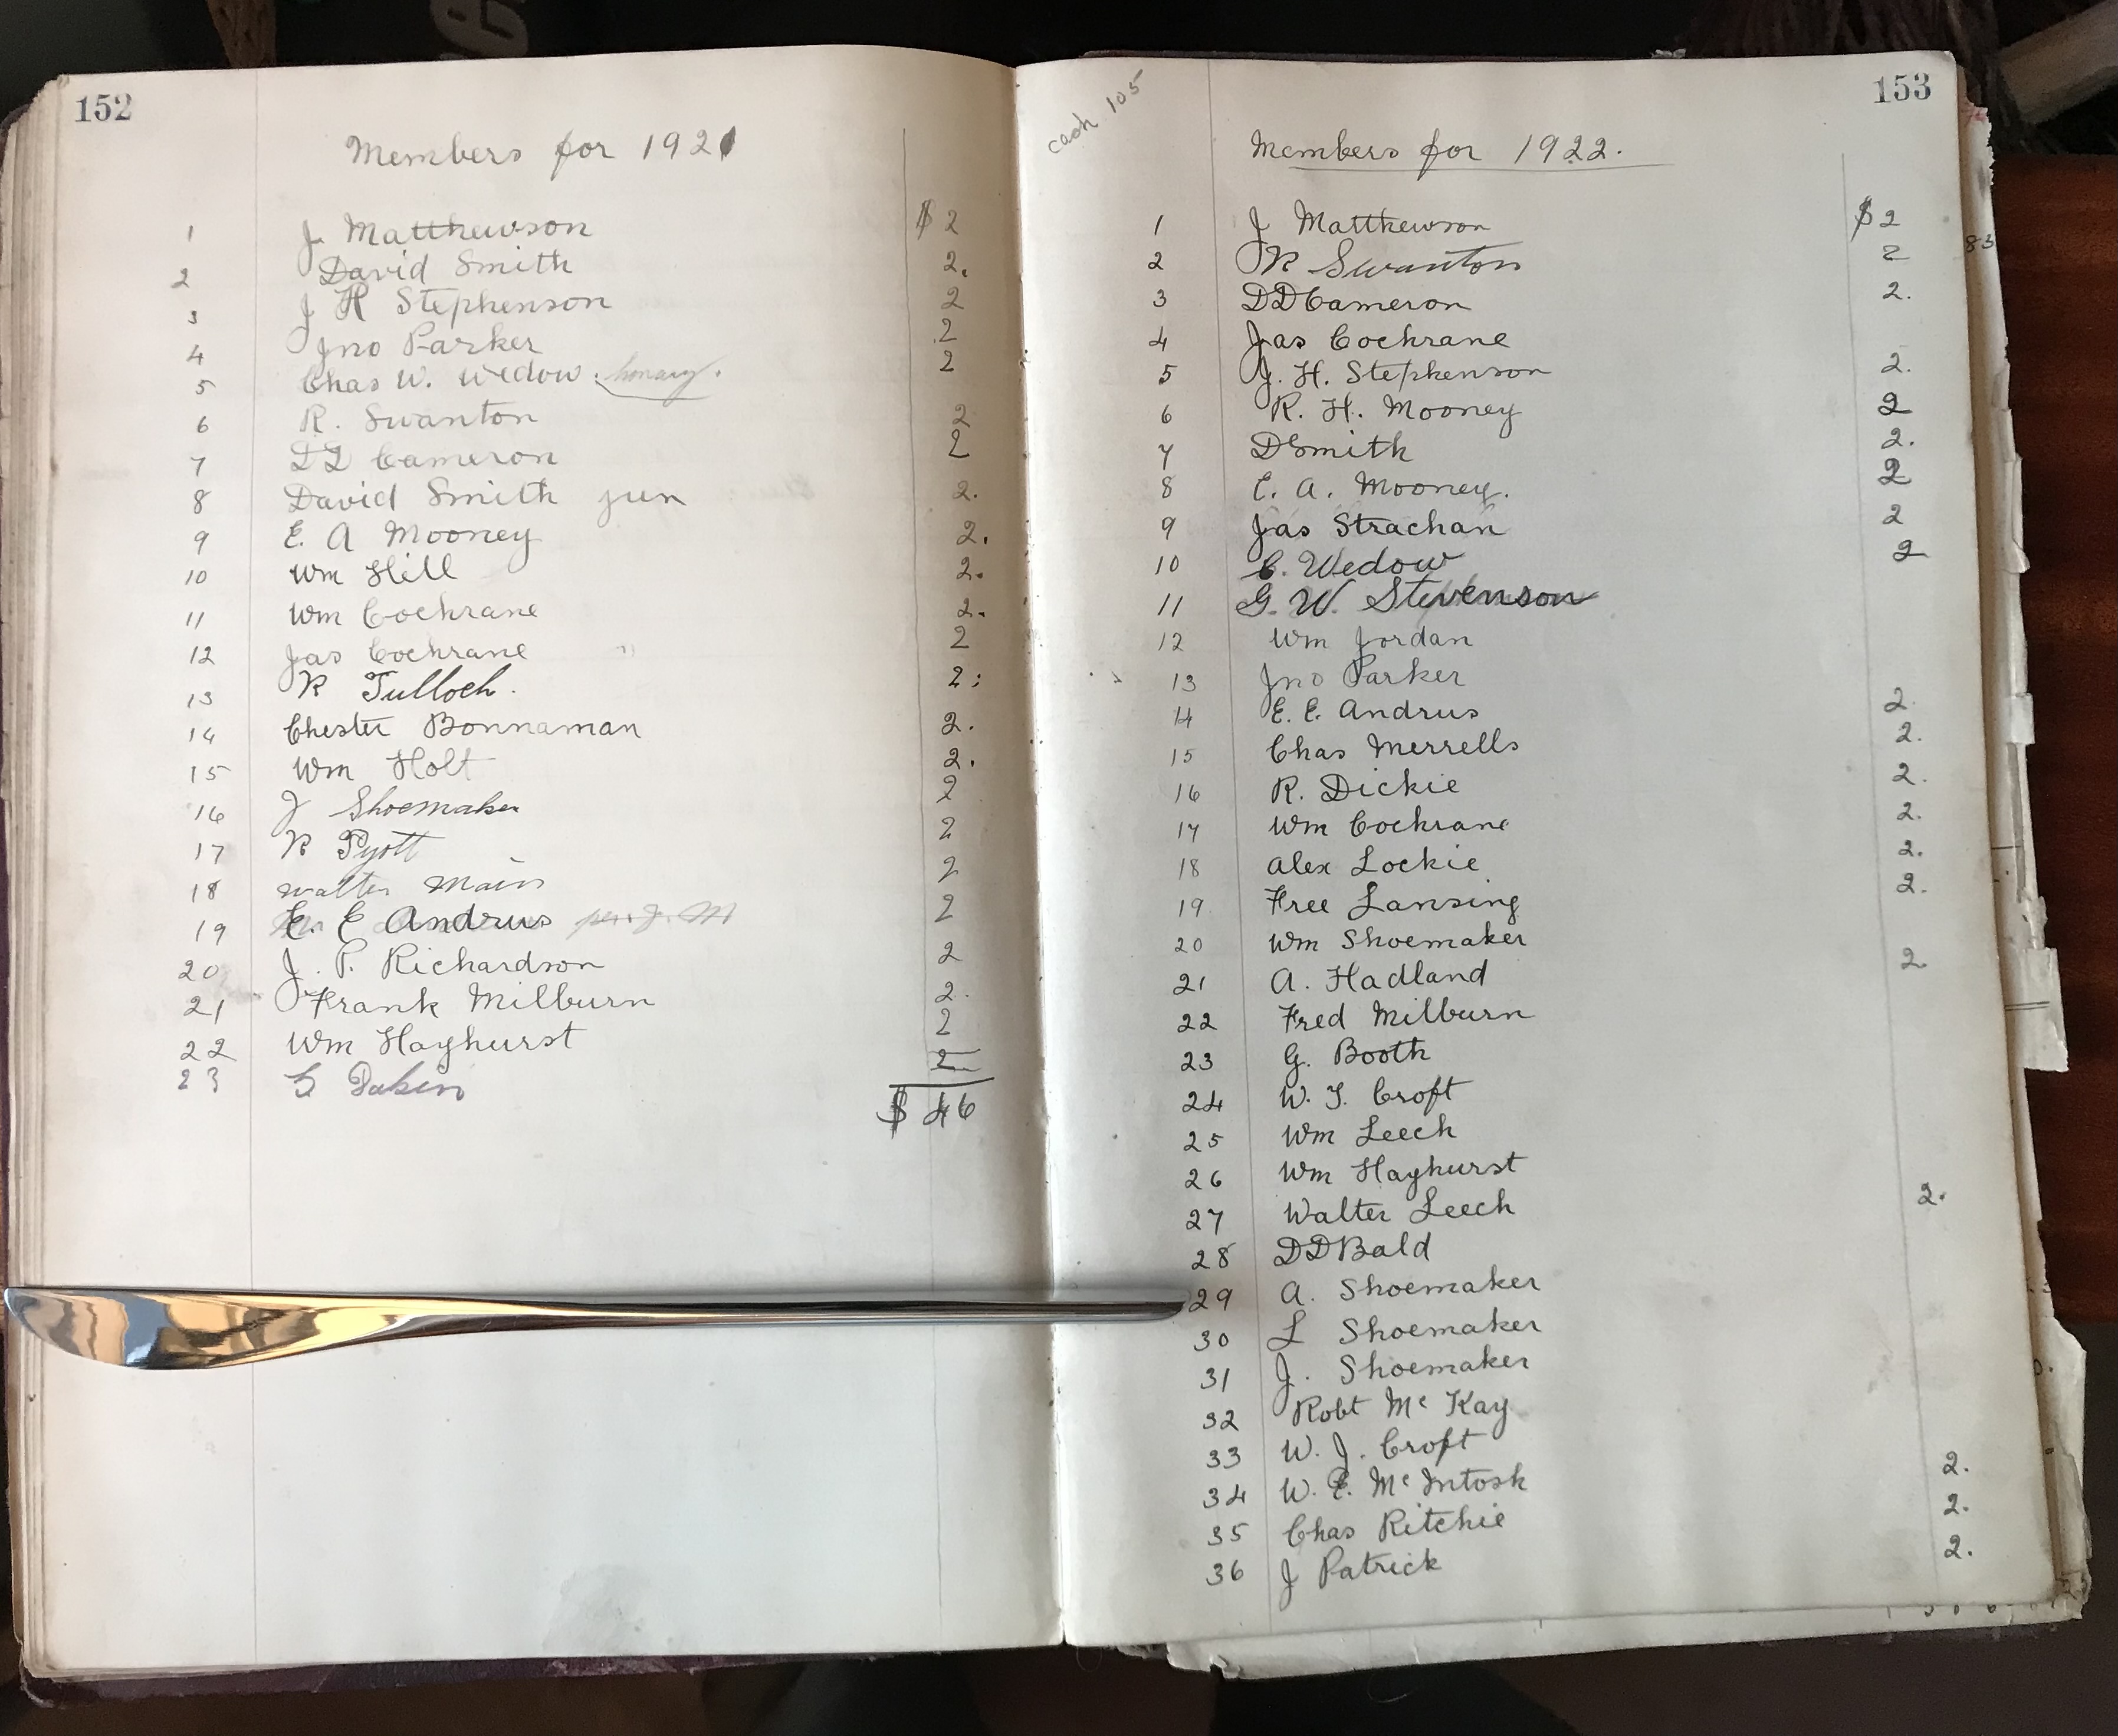 152
Members for 1921
1 J. Matthewson $ 2
2 David Smith 2.
3 J H Stephenson 2
4 Jno Parker 2
5 Chas W. Wedow. honary. 2
6 R. Swanton 2
7 DD Cameron 2
8 David Smith jun 2.
9 E. A Mooney 2.
10 Wm Hill 2.
11 Wm Cochrane 2.
12 Jas Cochrane 2
13 R Tulloch. 2:
14 Chester Bonnaman 2.
15 Wm Holt 2.
16 J Shoemaker 2
17 R Pyott 2
18 Walter Main 2
19 E. E Andrus per. J. M 2
20 J. P. Richardson 2
21 Frank Milburn 2.
22 Wm Hayhurst 2
23 G Dakin 2
$ 46
153
cash 105
Members for 1922.
1 J Matthewson $ 2
2 R Swanton 2
3 DD Cameron 2.
4 Jas Cochrane
5 J. H. Stephenson 2.
6 R. H. Mooney 2
7 D Smith 2.
8 E. A. Mooney. 2
9 Jas Strachan 2
10 C. Wedow 2
11 G. W. Stevenson
12 Wm Jordan
13 Jno Parker
14 E. E. Andrus 2.
15 Chas Merrells 2.
16 R. Dickie 2.
17 Wm Cochrane 2.
18 Alex Lockie 2.
19 Free Lansing 2.
20 Wm Shoemaker
21 A. Hadland 2
22 Fred Milburn
23 G. Booth
24 W. T. Croft
25 Wm Leech
26 Wm Hayhurst
27 Walter Leech 2.
28 DD Bald
29 A. Shoemaker
30 L Shoemaker
31 J. Shoemaker
32 Robt Mc Kay
33 W. J. Croft
34 W. E. Mc Intosh 2.
35 Chas Ritchie 2.
36 J Patrick 2.
83